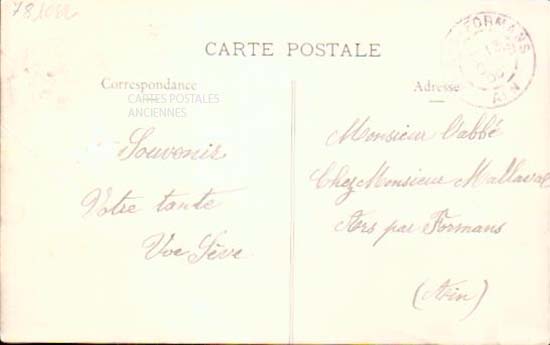 78
CARTE POSTALE
FORMANS
AIN
Correspondance
Adresse
CARTES POSTALES
ANCIENNES
Souvenir
Votre tante
Vve Sève
Monsieur l'abbé
Chez Monsieur Mallaval
Ars par Formans
(Ain)